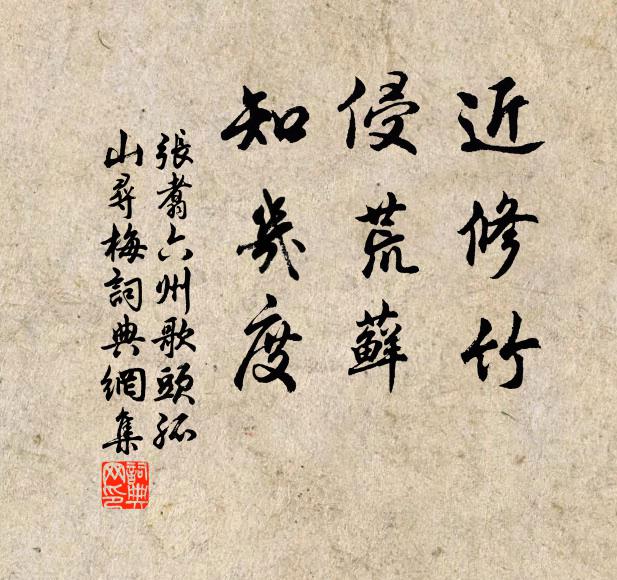 近修竹
侵荒蘚
知幾度
張翥六州歌頭孤
山尋梅詞典網集
詞典網印